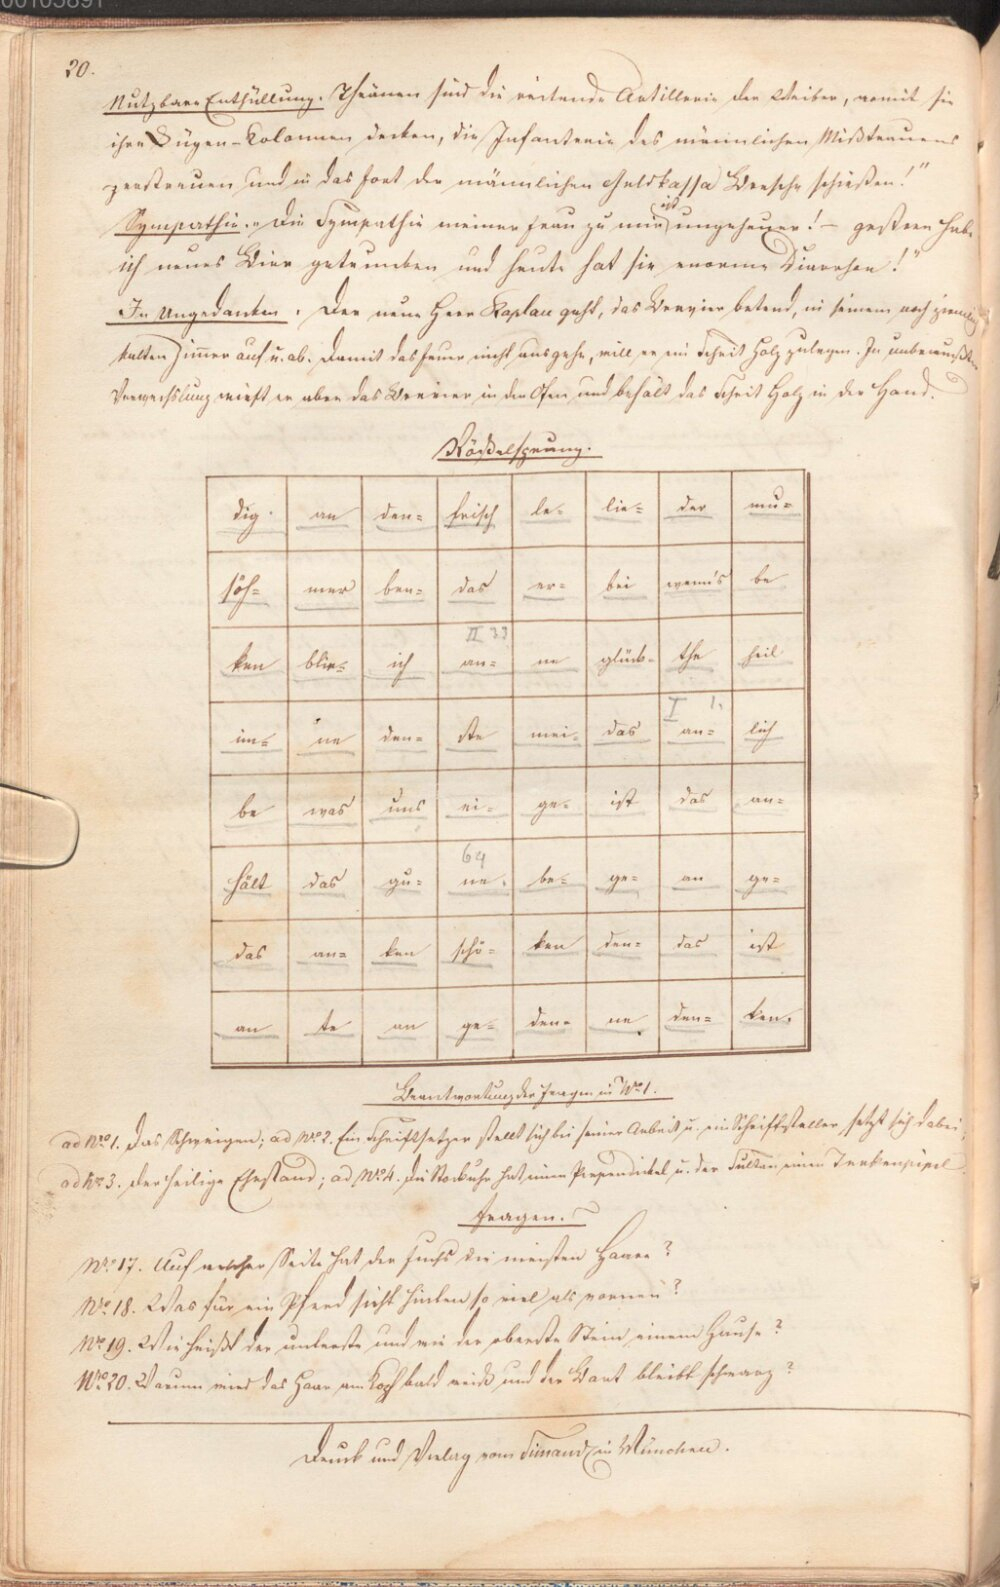 00105891
20.
Nutzbare Enthüllung. Thränen sind die reitende Artillerie der Weiber, womit sie
ihre Lügen-Kolonnen decken, die Infanterie des männlichen Mißtrauens
zerstreuen und in das Fort der männlichen Geldkassa Bresche schießen!"
Sympathie. "Die Sympathie meiner Frau zu mir ist ungeheuer! – gestern habe
ich neues Bier getrunken und heute hat sie enorme Diarrhoe!"
In Ungedanken. Der neue Herr Kaplan geht, das Brevier betend, in seinem noch ziemlich
kalten Zimmer auf u. ab. Damit das Feuer nicht ausgehe, will er ein Scheit Holz zulegen. In unbewußter
Verwechslung wirft er aber das Brevier in den Ofen und behält das Scheit Holz in der Hand.
Rößelsprung.
dig. an den= frisch le= lie= der mu=
söh= mer ben= das er= bei wenn's be
II 33
ken blie= ich an= ne glück= the heil
I 1.
im= ne den= ste mei= das an= lich
be was uns ei= ge= ist das an=
64
hält das gu= ne. be= ge= an ge=
das an= ken schö= ken den= das ist
an te an ge= den= ne den= ken.
Beantwortung der Fragen in No 1.
ad No 1. Das Schweigen; ad No 2. Ein Schriftsetzer stellt sich bei seiner Arbeit u. ein Schriftsteller setzt sich dabei;
ad No 3. Der heilige Ehestand; ad No 4. Die Stockuhr hat einen Perpendickel u. der Sultan einen
Fragen.
No 17. Auf welcher Seite hat der Fuchs die meisten Haare?
No 18. Was für ein Pferd sieht hinten so viel als vornen?
No 19. Wie heißt der unterste und wie der oberste Stein einem Hause?
No 20. Warum wird das Haar am Kopf bald weiß und der Bart bleibt schwarz?
Druck und Verlag vom in München.